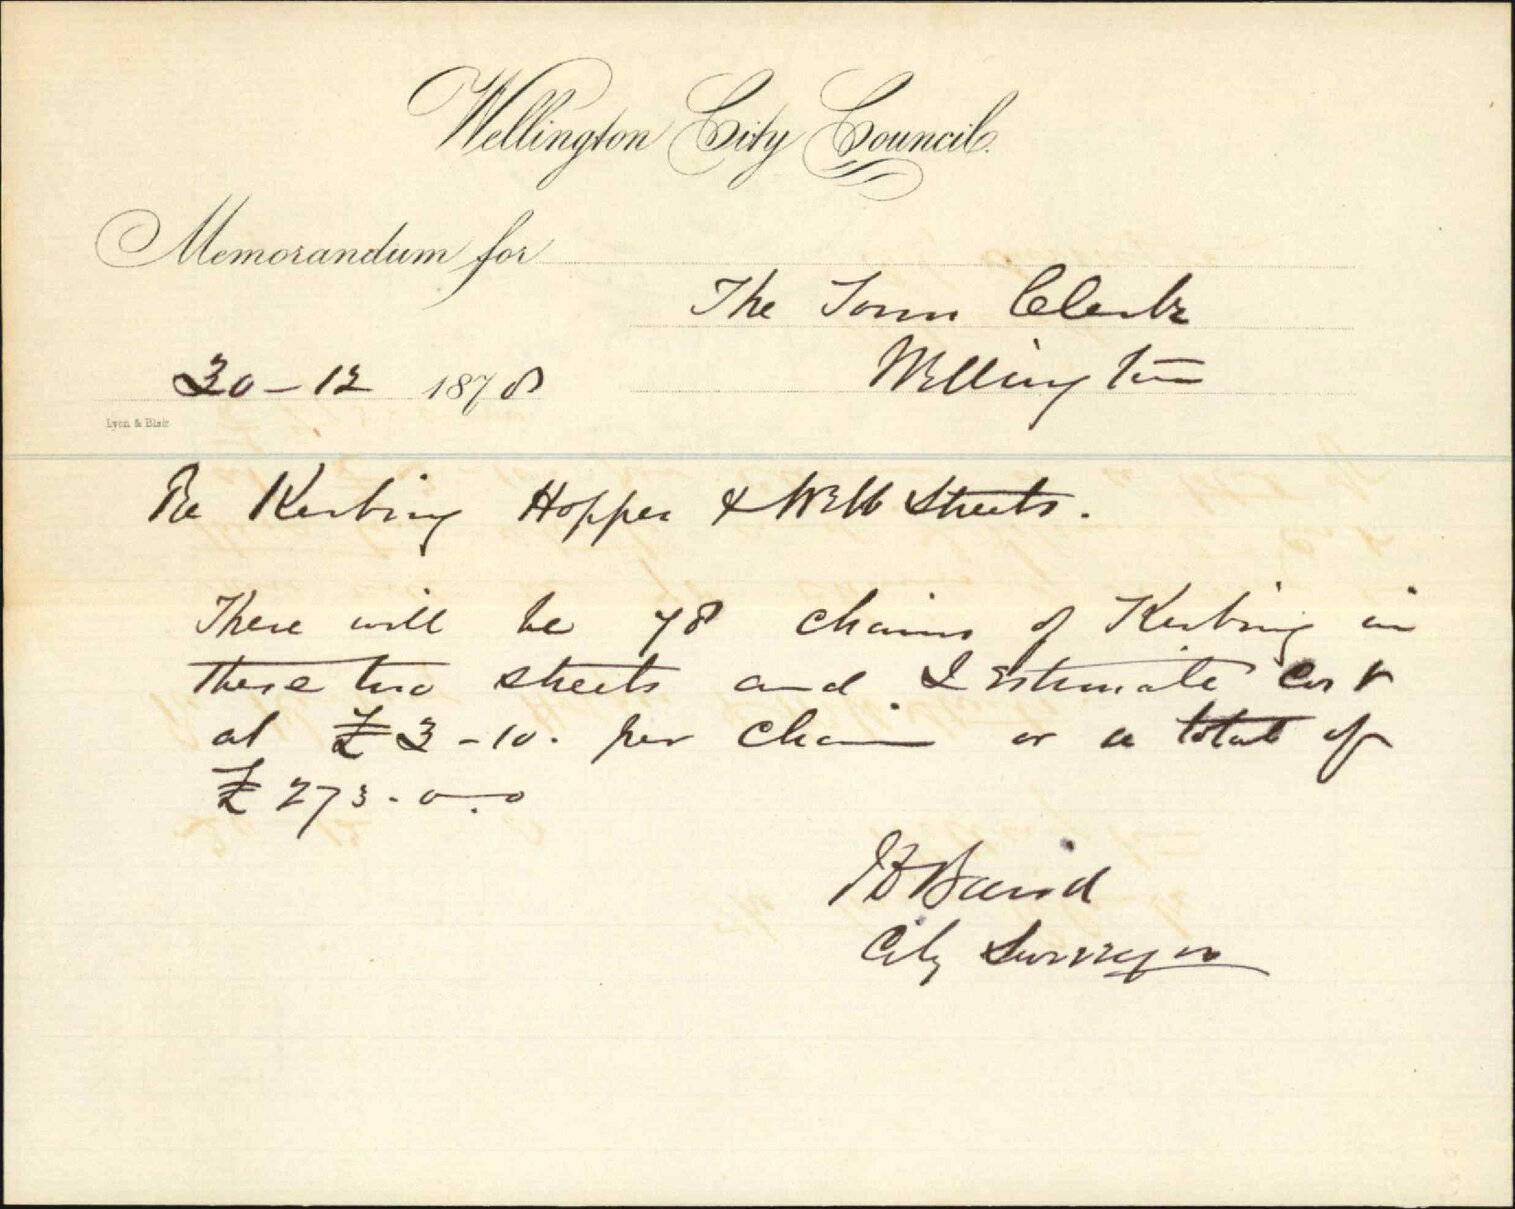 Wellington City Council.
Memorandum for
The Town Clerk
Wellington
30-12 1878
Lyon & Blair
Re Kerbing Hopper & Webb Streets.
There will be 78 chains of Kerbing in
these two streets and I Estimate cost
at £3-10. per chain or a total of
£273.0.0
JD Baird
City Surveyor